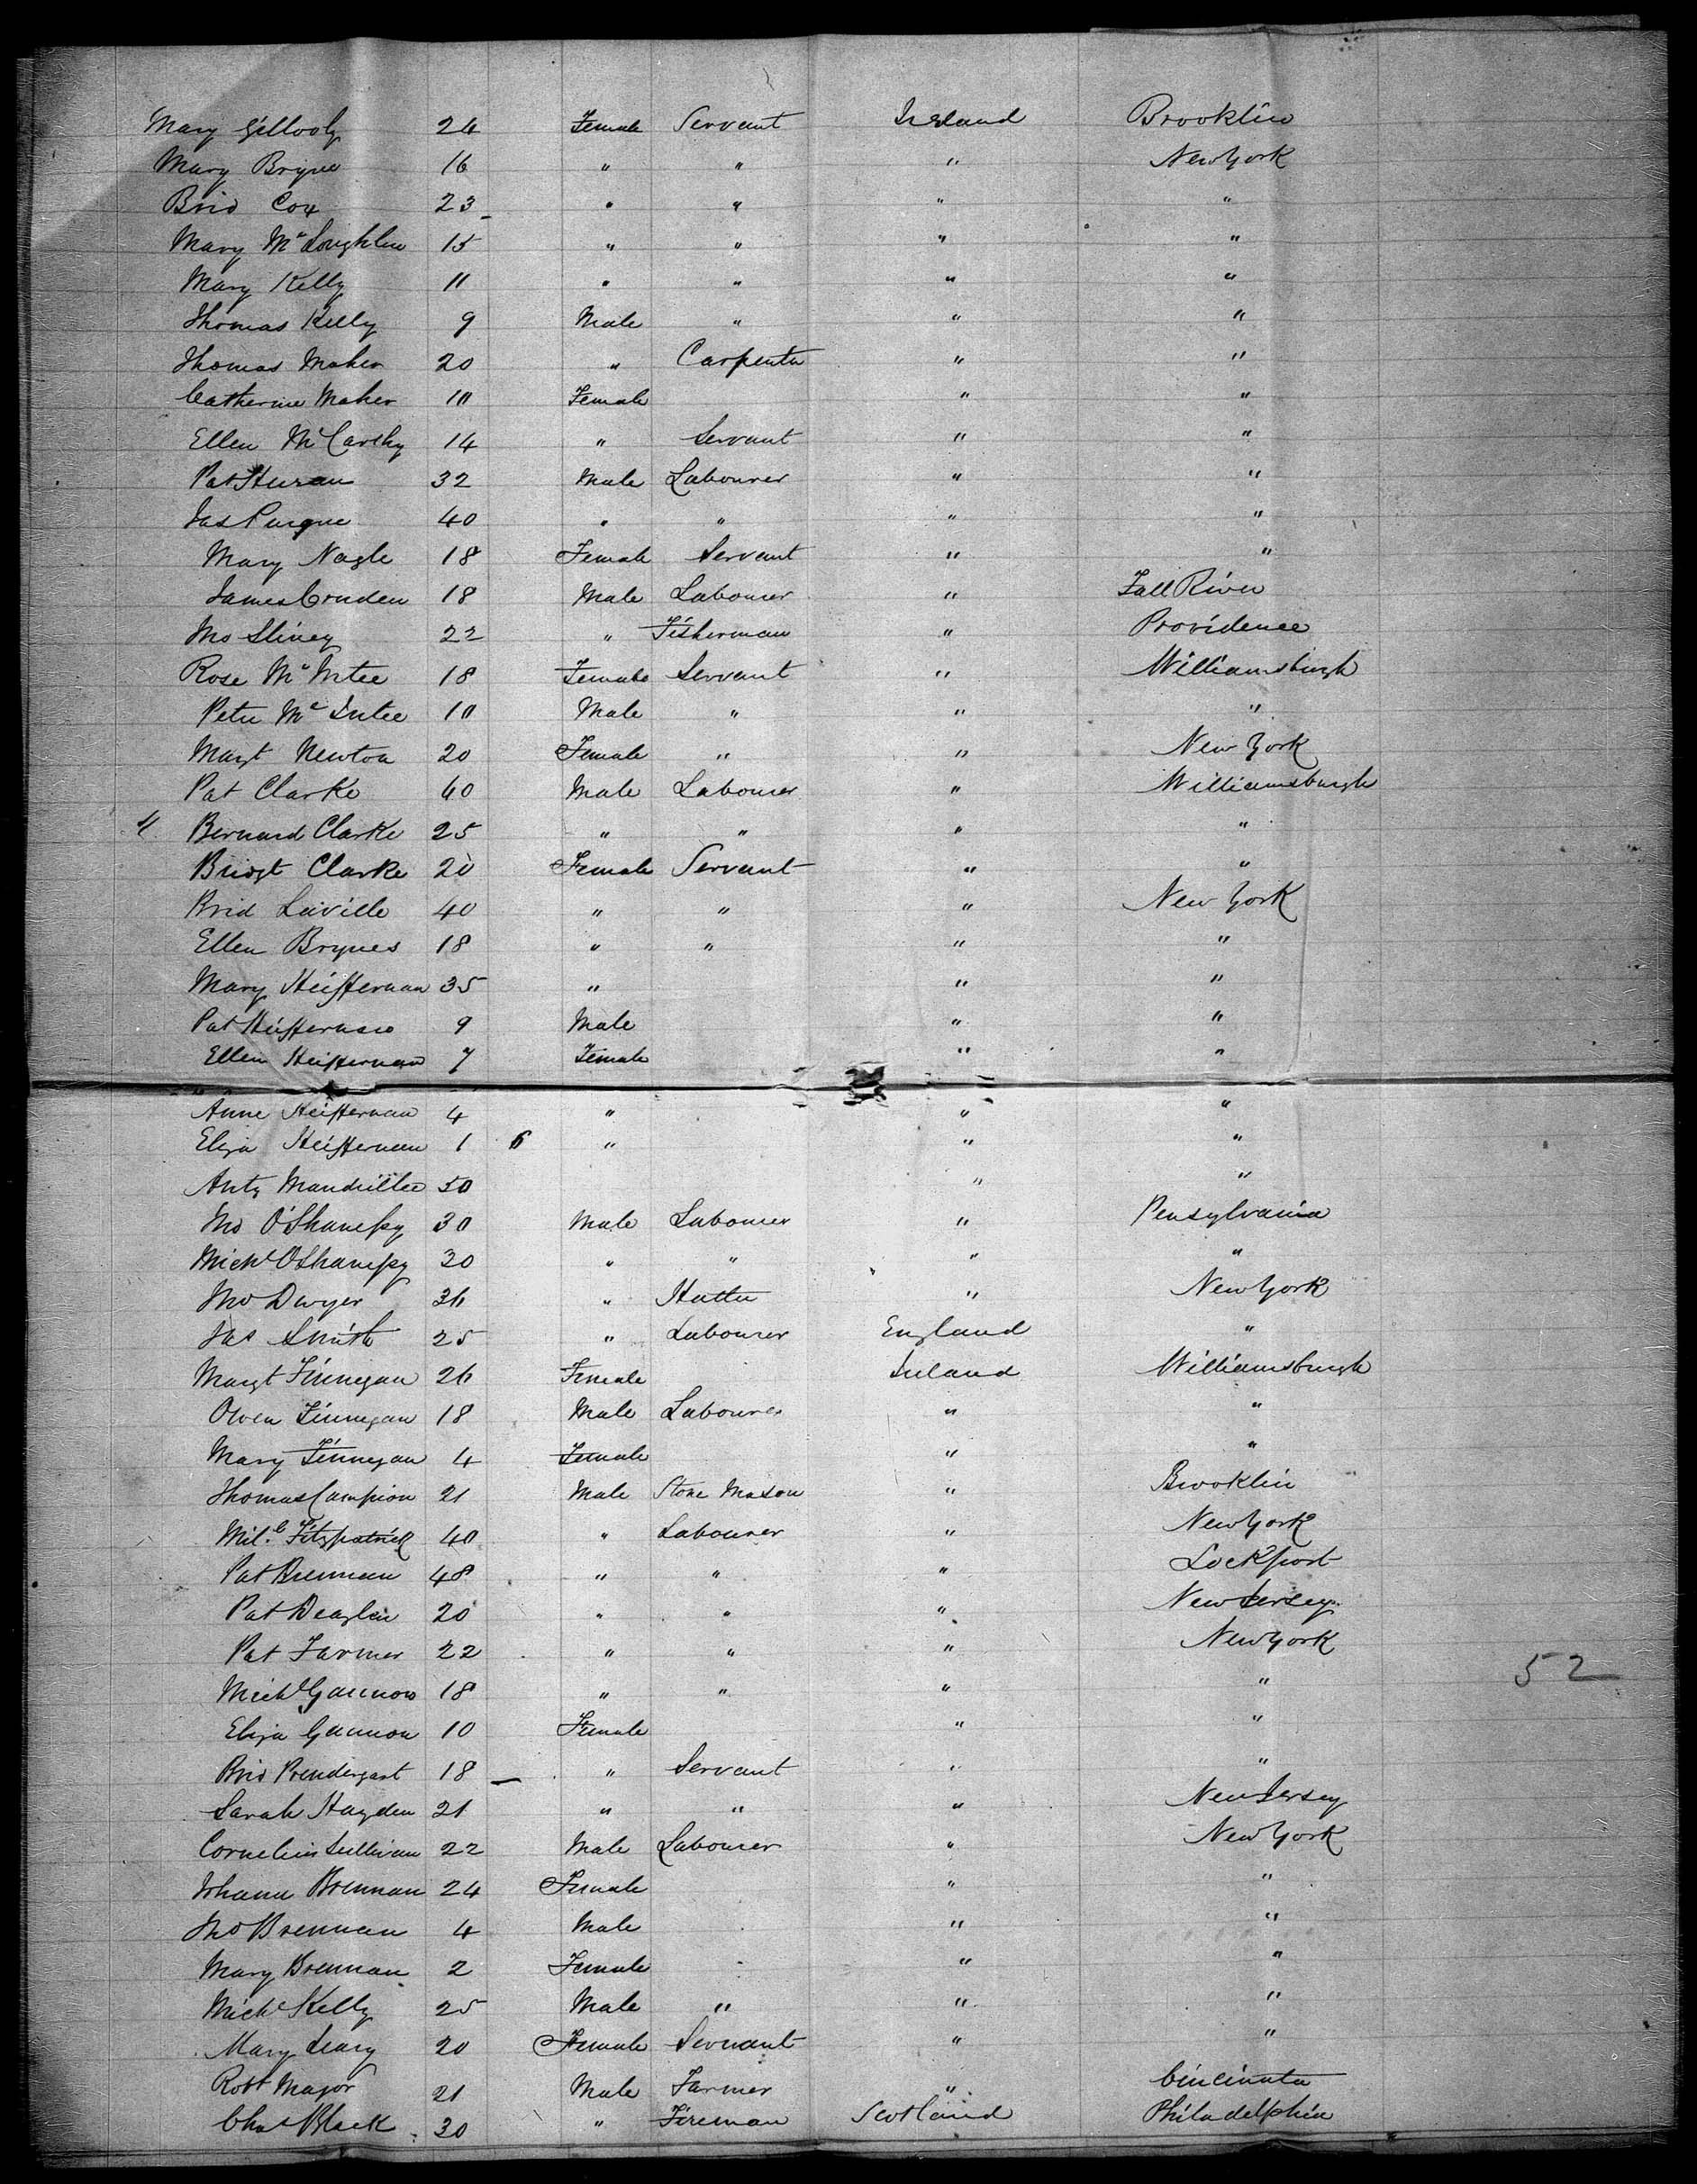 Mary Gillooly 24 Female Servant Ireland Brooklin
Mary Bryne 16 " " " New York
Brid Cox 23 " " " "
Mary McLoughlin 15 " " " "
Mary Kelly 11 " " " "
Thomas Kelly 9 Male " " "
Thomas Maher 20 " Carpenter " "
Catherine Maher 10 Female " "
Ellen McCarthy 14 " Servant " "
Pat 32 Male Labourer " "
Jas 40 " " " "
Mary Nagle 18 Female Servant " "
James Cruden 18 Male Labourer " Fall River
Jno Sliney 22 " Fisherman " Providence
Rose McIntee 18 Female Servant " Williamsburgh
Peter McIntee 10 Male " " "
Margt Newton 20 Female " " New York
Pat Clarke 40 Male Labourer " Williamsburgh
Bernard Clarke 25 " " " "
Bridgt Clarke 20 Female Servant " "
Brid Laville 40 " " " New York
Ellen Brynes 18 " " " "
Mary Heiffernan 35 " " "
Pat Heiffernan 9 Male " "
Ellen Heiffernan 7 Female " "
Anne Heiffernan 4 " " "
Eliza Heiffernan 1 6 " " "
Anty 50 " "
Jno O'Shanessy 30 Male Labourer " Pensylvania
Michl O'Shanessy 20 " " " "
Jno Dwyer 36 " Hatter " New York
Jas Smith 25 " Labourer England "
Margt Finnegan 26 Female Ireland Williamsburgh
Owen Finnegan 18 Male Labourer " "
Mary Finnegan 4 Female " "
Thomas Campion 21 Male Stone Mason " Brooklin
Mil. Fitzpatrick 40 " Labourer " New York
Pat Brennan 48 " " " Lockport
Pat Deaglin 20 " " " New Jersey
Pat Farmer 22 " " " New York
52
Michl Gannon 18 " " " "
Eliza Gannon 10 Female " "
Brid Prendergast 18 " Servant " "
Sarah Hayden 21 " " " New Jersey
Cornelius Sullivan 22 Male Labourer " New York
Johanna Brennan 24 Female " "
Jno Brennan 4 Male " "
Mary Brennan 2 Female " "
Michl Kelly 25 Male " " "
Mary Leary 20 Female Servant " "
Robt Major 21 Male Farmer " Cincinata
Chas Black 30 " Fireman Scotland Philadelphia